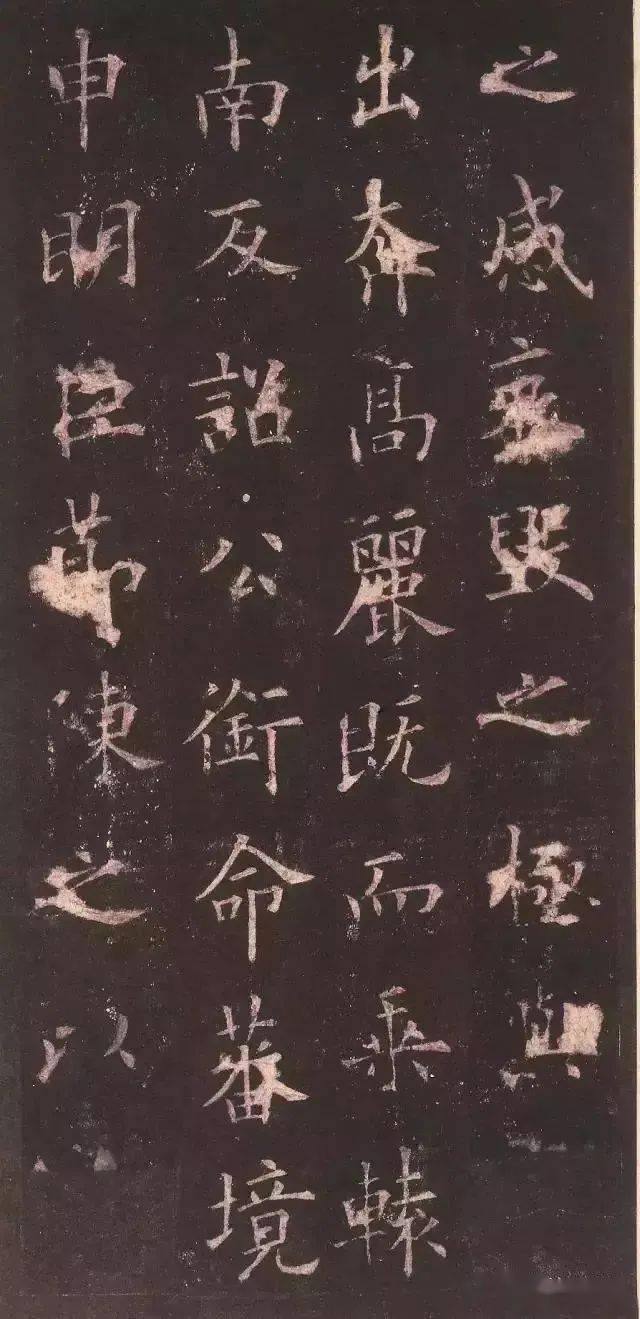 之感哀毁之極與
出奔高麗既而乘轅
南反詔公銜命蕃境
申明臣節陳之以